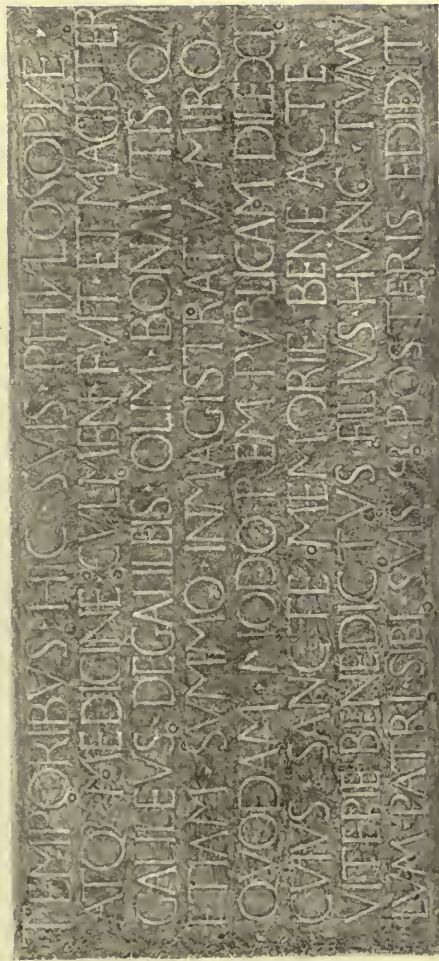 TEMPORIBVS·HIC·SVIS·PHYLOSOPHIE
ATQ·MEDICINE·CVLMEN·FVIT·ET·MAGISTER
GALILEVS·DEGALILEIS·OLIM·BONAIVTIS·QVI
ETIAM·SVMMO·INMAGISTRATV·MIRO
QVODAM·MODO·REMPVBLICAM·DILEXIT
CVIVS·SANCTE·MEMORIE·BENE·ACTE
VITE·PIE·BENEDICTVS·FILIVS·HVNC·TVMV
LVM·PATRI·SIBI·SVIS·Q·POSTERIS·EDIDIT